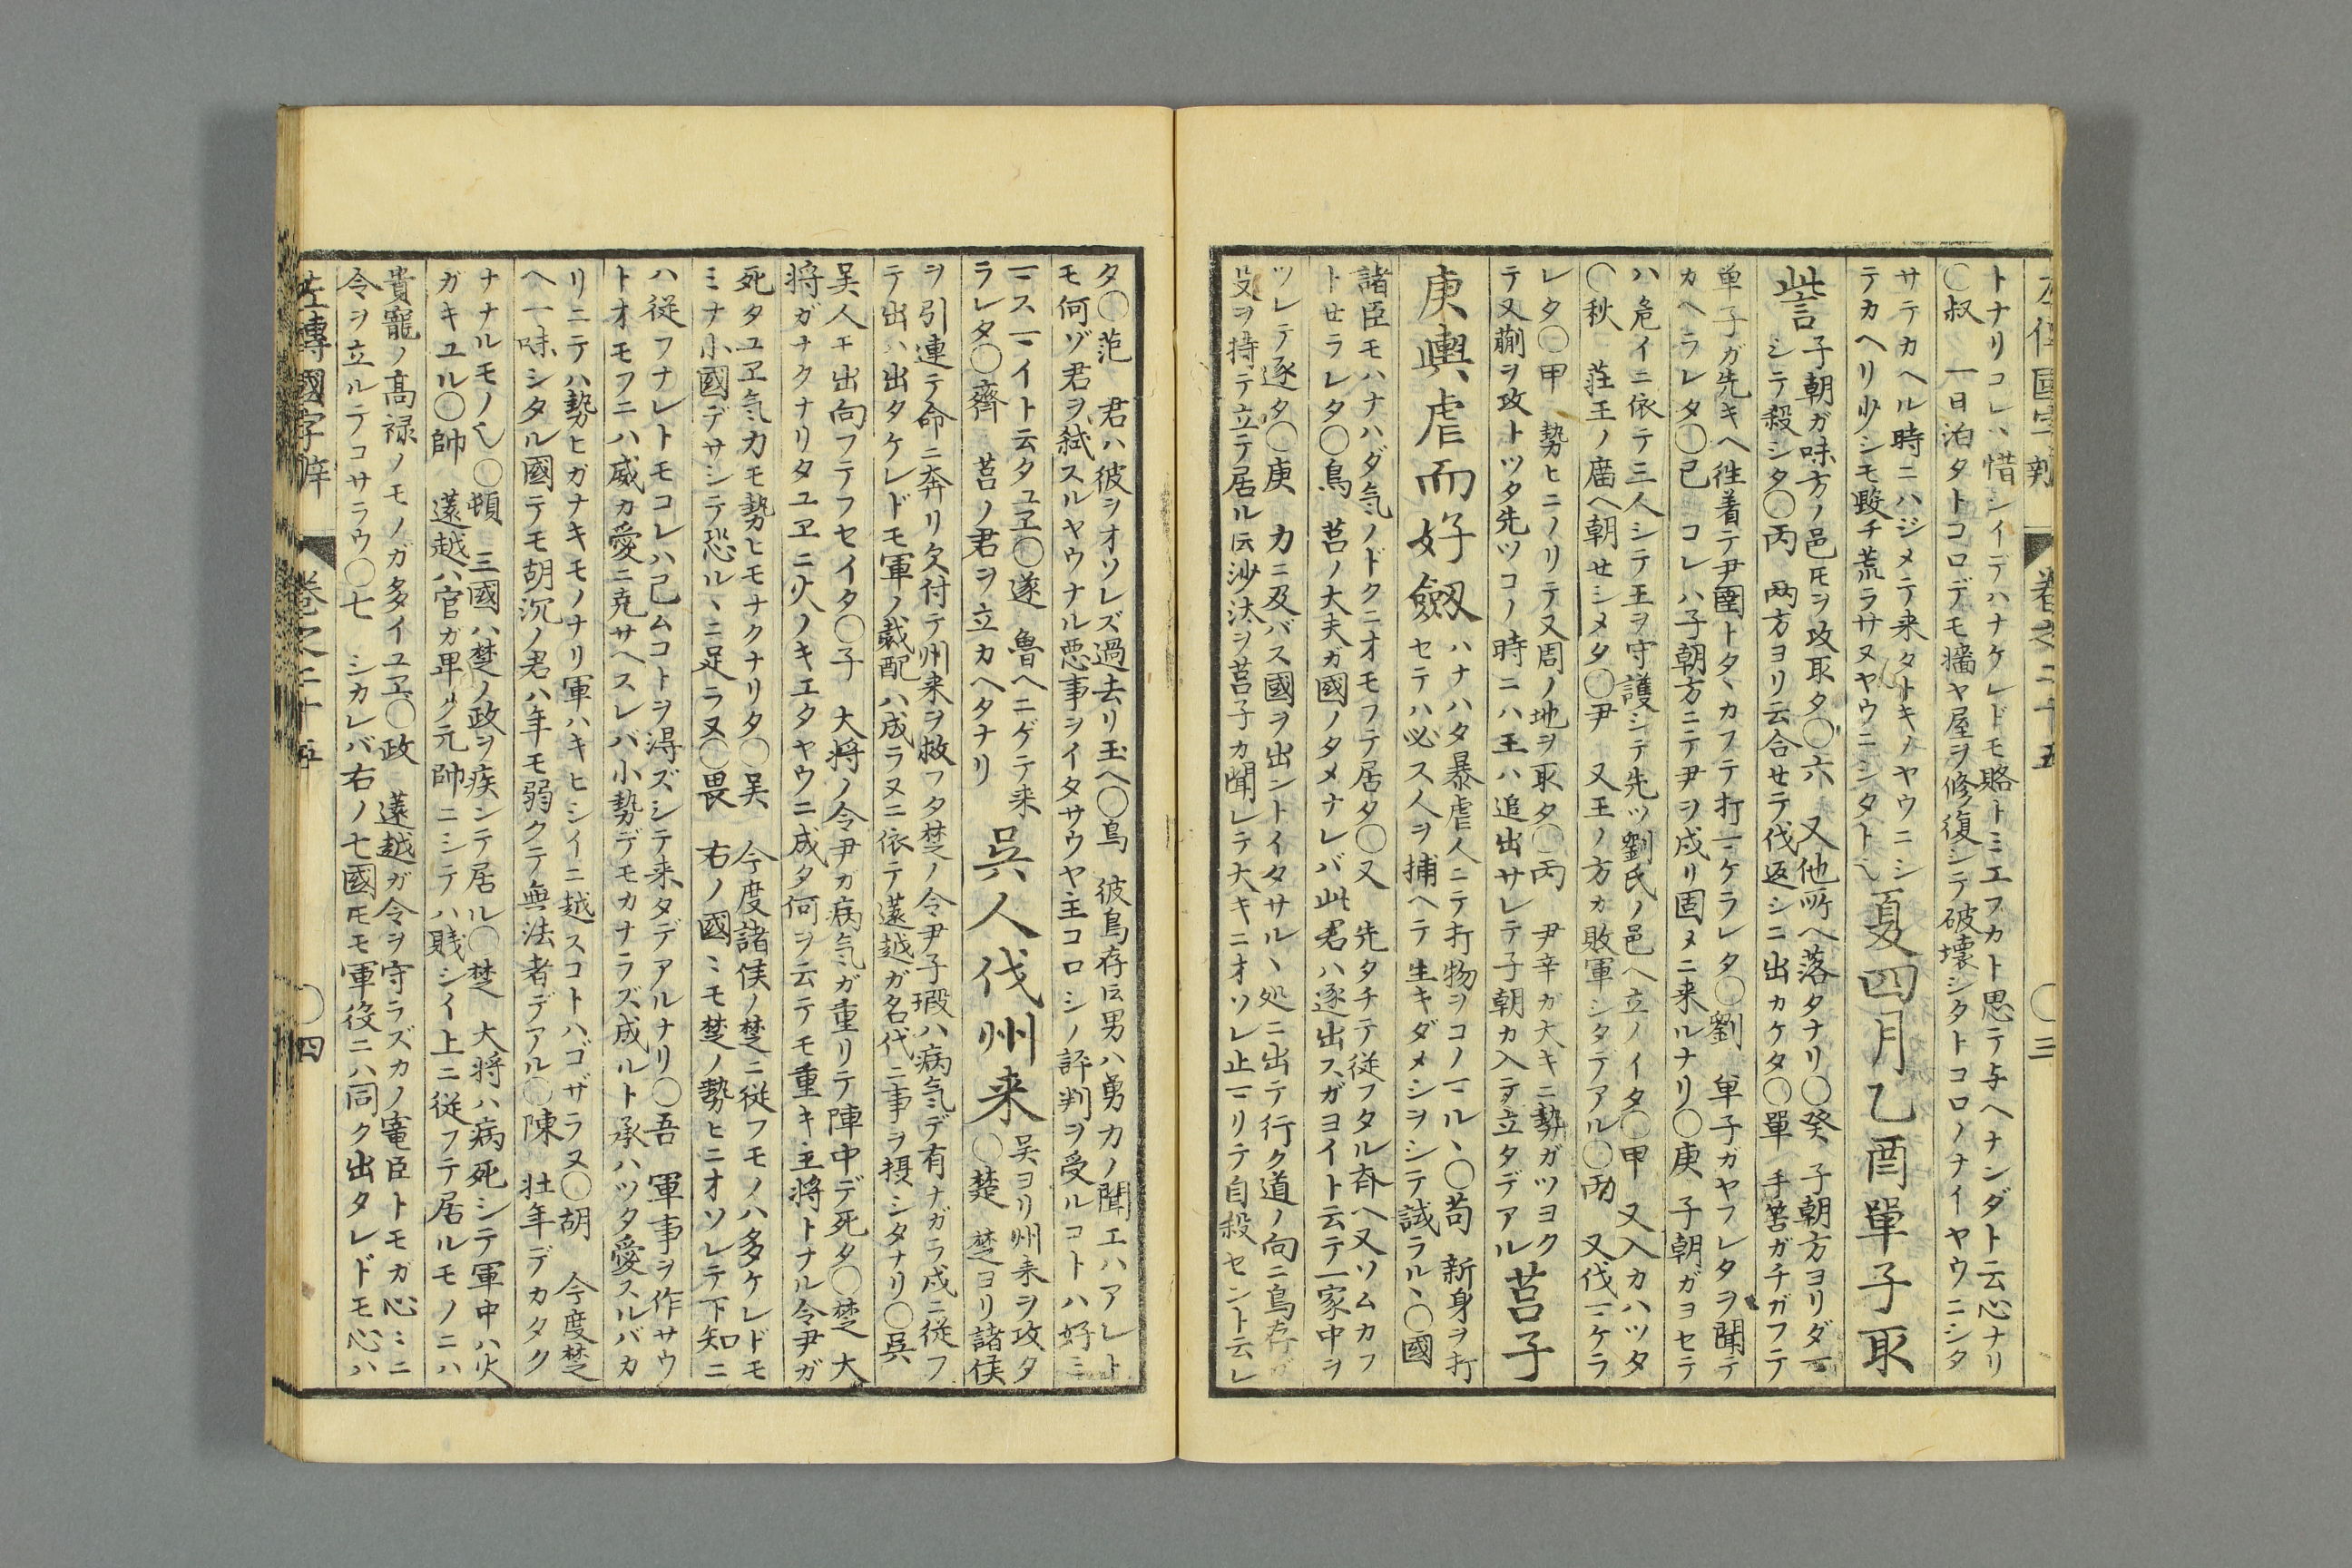 トナリコレハ惜シイデハナケレドモ賂トミエフカト思テ与ヘナンダト云心ナリ
〇叔 一日泊タトコロデモ墻ヤ屋ヲ修復シテ破壊シタトコロノナイヤウニシタ
サテカヘル時ニハジメテ来タトキノヤウニシ
テカヘリ少シモ毀チ荒ラサヌヤウニシタト
夏四月乙酉單子取
訾
子朝ガ味方ノ邑𪜈ヲ攻取タ〇六 又他所ヘ落タナリ〇癸 子朝方ヨリダマ
シテ殺シタ〇丙 両方ヨリ云合セテ伐返シニ出カケタ〇單 手筈ガチガフテ
単子ガ先キヘ徃着テ尹圉トタヽカフテ打マケラレタ〇劉 単子ガヤフレタヲ聞テ
カヘラレタ〇已 コレハ子朝方ニテ尹ヲ戍リ固メニ来ルナリ〇庚 子朝ガヨセテ
ハ危イニ依テ三人シテ王ヲ守護シテ先ツ劉氏ノ邑ヘ立ノイタ〇甲 又入カハツタ
〇秋 荘王ノ廟ヘ朝セシメタ〇尹 又王ノ方カ敗軍シタデアル〇丙 又伐マケラ
レタ〇甲 勢ヒニノリテ又周ノ地ヲ取タ〇丙 尹辛カ大キニ勢ガツヨク
テ又蒯ヲ攻トツタ先ツコノ時ニハ王ハ追出サレテ子朝カ入テ立タデアル
莒子
庚輿虐而好劔
ハナハタ暴虐人ニテ打物ヲコノマルヽ〇苟 新身ヲ打
セテハ必ス人ヲ捕ヘテ生キダメシヲシテ誠ラルヽ〇國
諸臣モハナハダ気ノドクニオモフテ居タ〇又 先タチテ従フタル斉ヘ又ソムカフ
トセラレタ〇烏 莒ノ大夫ガ國ノタメナレバ此君ハ逐出スガヨイト云テ一家中ヲ
ツレテ逐タ〇庚 力ニ及バス國ヲ出ントイタサルヽ処ニ出テ行ク道ノ向ニ烏存ガ
殳ヲ持テ立テ居ル𫝂沙汰ヲ莒子カ聞レテ大キニオソレ止マリテ自殺セント云レ
タ〇苑 君ハ彼ヲオソレズ過去リ玉ヘ〇烏 彼烏存𫝂男ハ勇力ノ聞エハアレト
モ何ゾ君ヲ弑スルヤウナル悪事ヲイタサウヤ主コロシノ評判ヲ受ルコトハ好ミ
マスマイト云タユヱ〇遂 魯ヘニゲテ来
ラレタ〇齊 莒ノ君ヲ立カヘタナリ
呉人伐州来
吴ヨリ州来ヲ攻タ
〇楚 楚ヨリ諸侯
ヲ引連テ命ニ奔リ欠付テ州来ヲ救フタ楚ノ令尹子瑕ハ病気デ有ナガラ戍ニ従フ
テ出ハ出タケレドモ軍ノ裁配ハ成ラヌニ依テ薳越ガ名代ニ事ヲ摂シタナリ〇呉
吴人ヱ出向フテフセイタ〇子 大将ノ令尹ガ病気ガ重リテ陣中デ死タ〇楚 大
将ガナクナリタユヱニ火ノキエタヤウニ成タ何ヲ云テモ重キ主将トナル令尹ガ
死タユヱ気力モ勢ヒモナクナリタ〇吴 今度諸侯ノ楚ニ従フモノハ多ケレドモ
ミナ小國デサシテ恐ルヽニ足ラヌ〇畏 右ノ國ミモ楚ノ勢ヒニオソレテ下知ニ
ハ従フナレトモコレハ已ムコトヲ得ズシテ来タデアルナリ〇吾 軍事ヲ作サウ
トオモフニハ威カ愛ニ克サヘスレバ小勢デモカナラズ成ルト承ハツタ愛スルバカ
リニテハ勢ヒガナキモノナリ軍ハキヒシイニ越スコトハゴザラヌ〇胡 今度楚
ヘ一味シタル國テモ胡沉ノ君ハ年モ弱クテ無法者デアル〇陳 壮年デカタク
ナナルモノ〇頓 三國ハ楚ノ政ヲ疾ンテ居ル〇楚 大将ハ病死シテ軍中ハ火
ガキユル〇帥 薳越ハ官ガ卑ク元帥ニシテハ賎シイ上ニ従フテ居ルモノニハ
貴寵ノ高禄ノモノガ多イユヱ〇政 薳越ガ令ヲ守ラズカノ寵臣トモガ心ミニ
令ヲ立ルテコサラウ〇七 シカレバ右ノ七國𪜈モ軍役ニハ同ク出タレドモ心ハ
左傳國字辯 巻之二十五 〇四